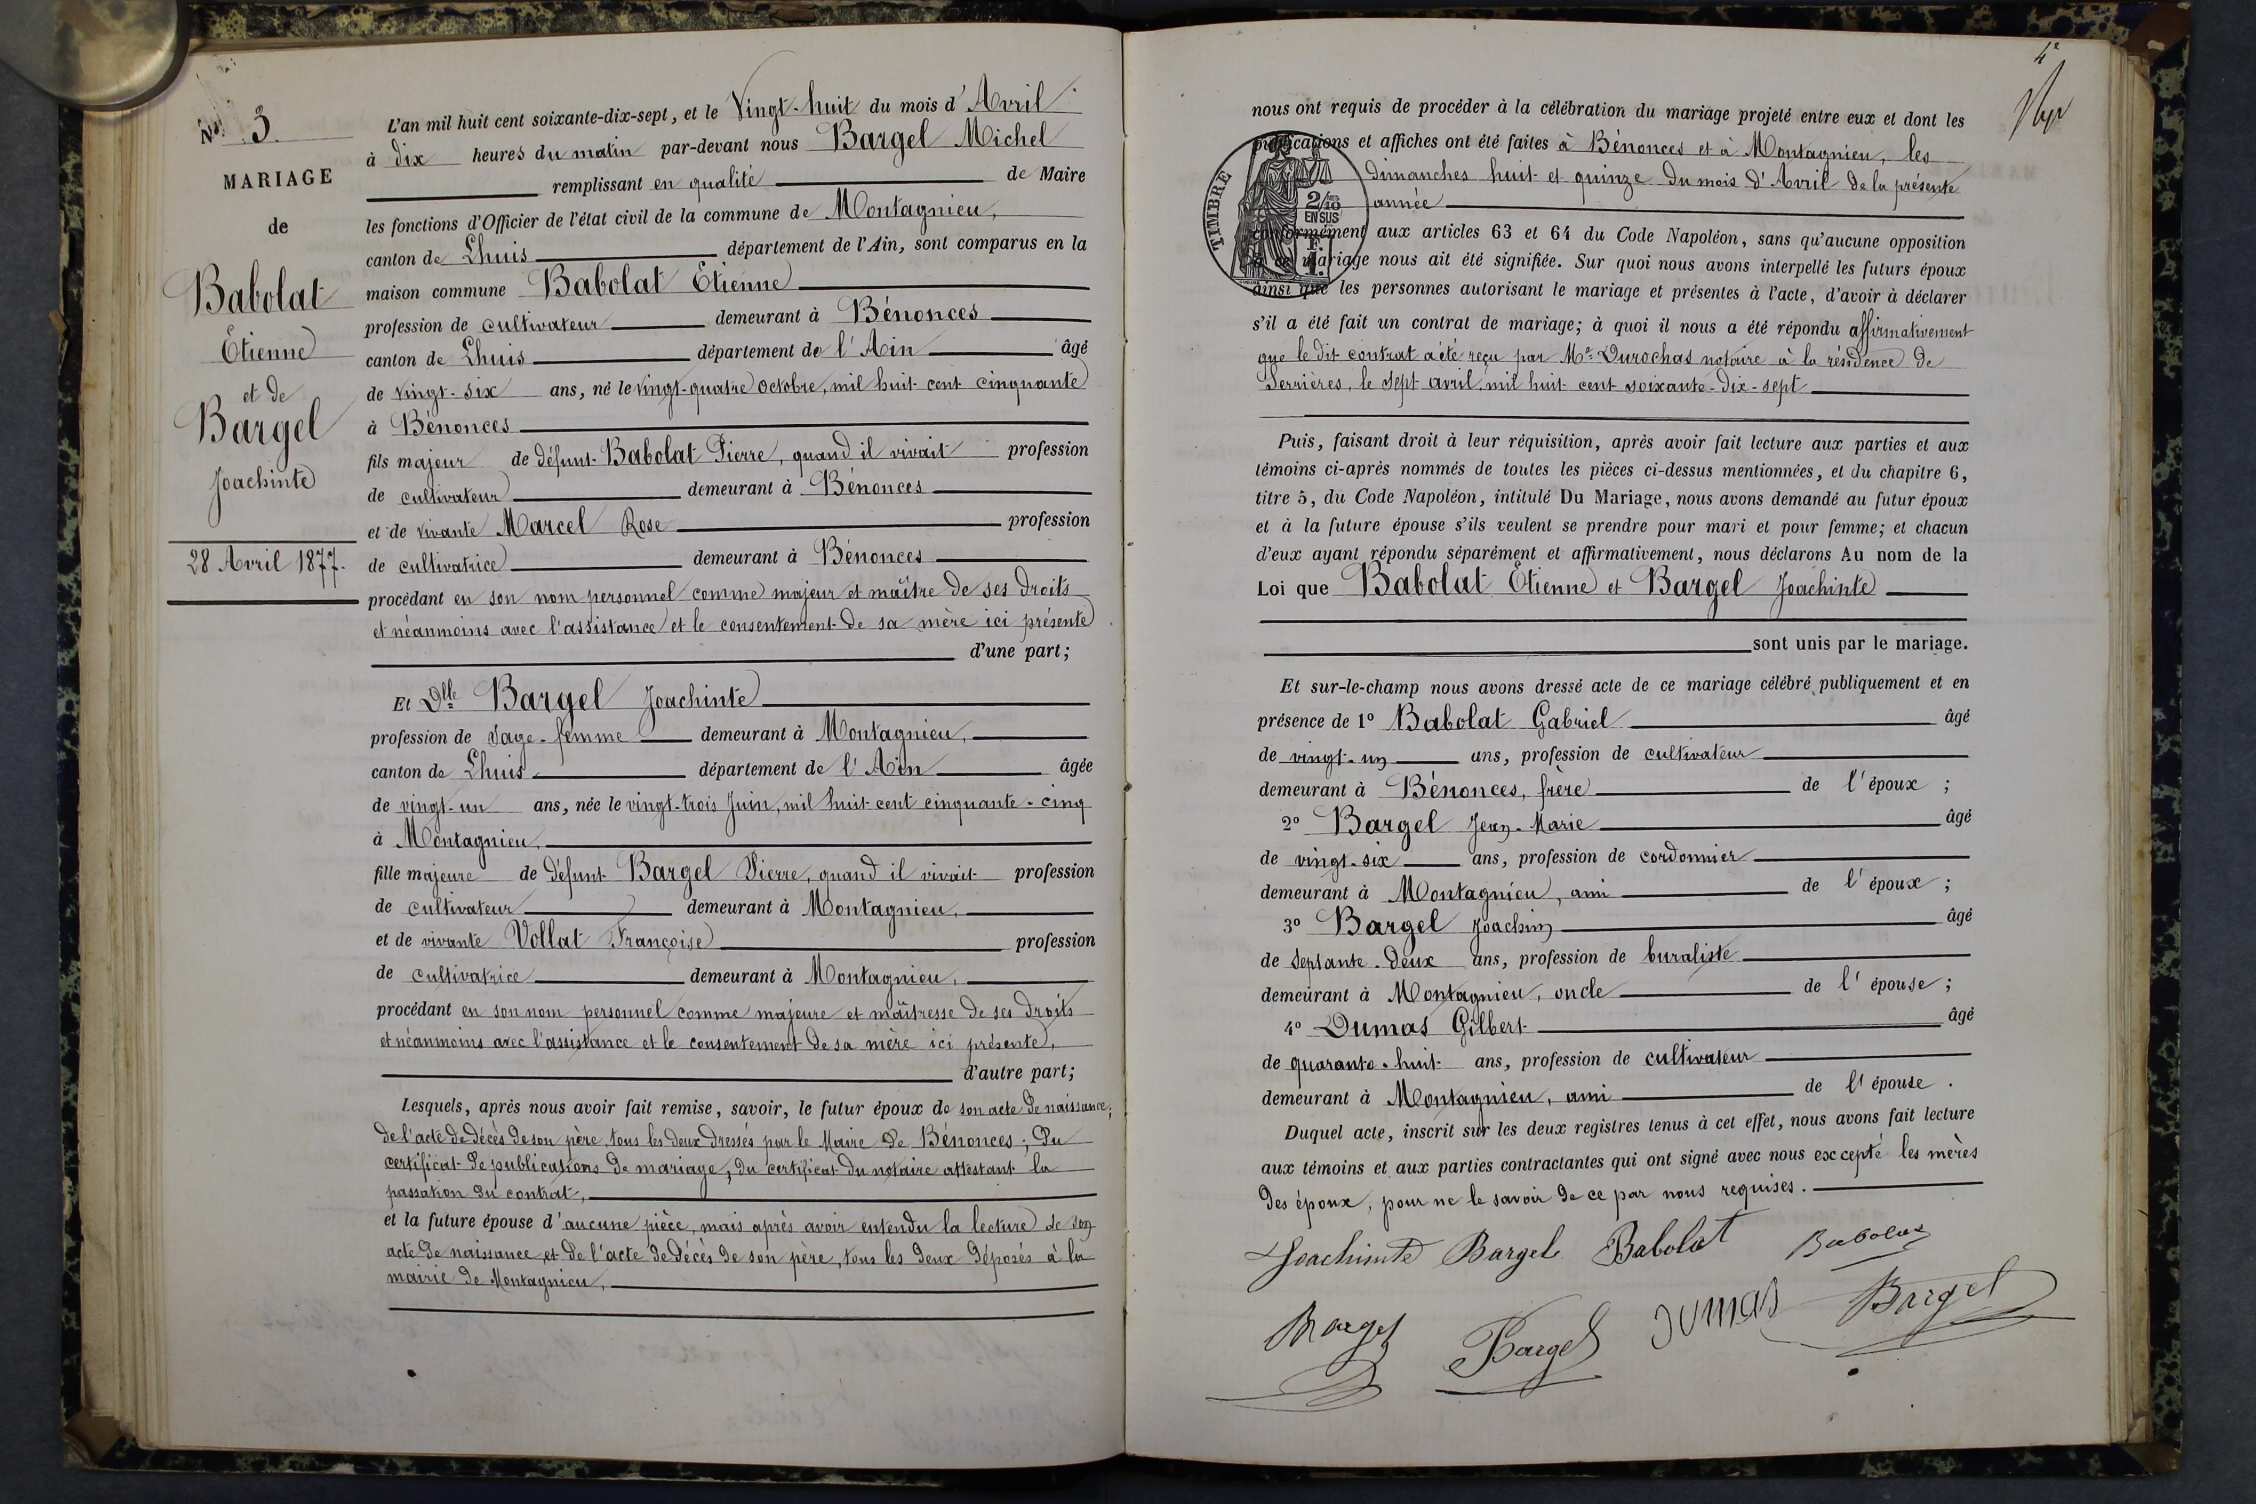 No 3.
MARIAGE
de
Babolat
Étienne
et de
Bargel
Joachinte
28 Avril 1877.
L'an mil huit cent soixante-dix-sept, et le Vingt-huit du mois d'Avril
à dix heures du matin par-devant nous Bargel Michel
remplissant en qualité de Maire
les fonctions d'Officier de l'état civil de la commune de Montagnieu,
canton de Lhuis département de l'Ain, sont comparus en la
maison commune Babolat Étienne
profession de cultivateur demeurant à Bénonces
canton de Lhuis département de l'Ain âgé
de vingt-six ans, né le vingt-quatre octobre, mil huit cent cinquante
à Bénonces
fils majeur de défunt Babolat Pierre, quand il vivait profession
de cultivateur demeurant à Bénonces
et de vivante Marcel Rose profession
de cultivatrice demeurant à Bénonces
procédant en son nom personnel comme majeur et maître de ses droits
et néanmoins avec l'assistance et le consentement de sa mère ici présente
d'une part;
Et Dlle Bargel Joachinte
profession de sage-femme demeurant à Montagnieu,
canton de Lhuis département de l'Ain âgée
de vingt-un ans, née le vingt-trois Juin, mil huit cent cinquante-cinq
à Montagnieu,
fille majeure de défunt Bargel Pierre, quand il vivait profession
de cultivateur demeurant à Montagnieu,
et de vivante Vollat Françoise profession
de cultivatrice demeurant à Montagnieu,
procédant en son nom personnel comme majeure et maîtresse de ses droits
et néanmoins avec l'assistance et le consentement de sa mère ici présente,
d'autre part;
Lesquels, après nous avoir fait remise, savoir, le futur époux de son acte de naissance;
de l'acte de décès de son père, tous les deux dressés par le Maire de Bénonces; du
certificat de publications de mariage, du certificat du notaire attestant la
passation du contrat,
et la future épouse d'aucune pièce, mais après avoir entendu la lecture de son
acte de naissance et de l'acte de décès de son père, tous les deux déposés à la
mairie de Montagnieu,
nous ont requis de procéder à la célébration du mariage projeté entre eux et dont les
publications et affiches ont été faites à Bénonces et à Montagnieu, les
dimanches huit et quinze du mois d'Avril de la présente
année
TIMBRE
2/10
EN SUS
conformément aux articles 63 et 64 du Code Napoléon, sans qu'aucune opposition
à ce mariage nous ait été signifiée. Sur quoi nous avons interpellé les futurs époux
ainsi que les personnes autorisant le mariage et présentes à l'acte, d'avoir à déclarer
s'il a été fait un contrat de mariage; à quoi il nous a été répondu affirmativement
que le dit contrat a été reçu par Me Durochas notaire à la résidence de
Serrières, le sept avril, mil huit cent soixante-dix-sept
Puis, faisant droit à leur réquisition, après avoir fait lecture aux parties et aux
témoins ci-après nommés de toutes les pièces ci-dessus mentionnées, et du chapitre 6,
titre 5, du Code Napoléon, intitulé Du Mariage, nous avons demandé au futur époux
et à la future épouse s'ils veulent se prendre pour mari et pour femme; et chacun
d'eux ayant répondu séparément et affirmativement, nous déclarons Au nom de la
Loi que Babolat Étienne et Bargel Joachinte
sont unis par le mariage.
Et sur-le-champ nous avons dressé acte de ce mariage célébré publiquement et en
présence de 1° Babolat Gabriel âgé
de vingt-un ans, profession de cultivateur
demeurant à Bénonces, frère de l'époux;
2° Bargel Jean-Marie âgé
de vingt-six ans, profession de cordonnier
demeurant à Montagnieu, ami de l'époux;
3° Bargel Joachim âgé
de septante-deux ans, profession de buraliste
demeurant à Montagnieu, oncle de l'épouse;
4° Dumas Gilbert âgé
de quarante-huit ans, profession de cultivateur
demeurant à Montagnieu, ami de l'épouse.
Duquel acte, inscrit sur les deux registres tenus à cet effet, nous avons fait lecture
aux témoins et aux parties contractantes qui ont signé avec nous excepté les mères
des époux, pour ne le savoir de ce par nous requises.
Joachinte Bargel Babolat Babolat
Bargel Bargel Dumas Bargel